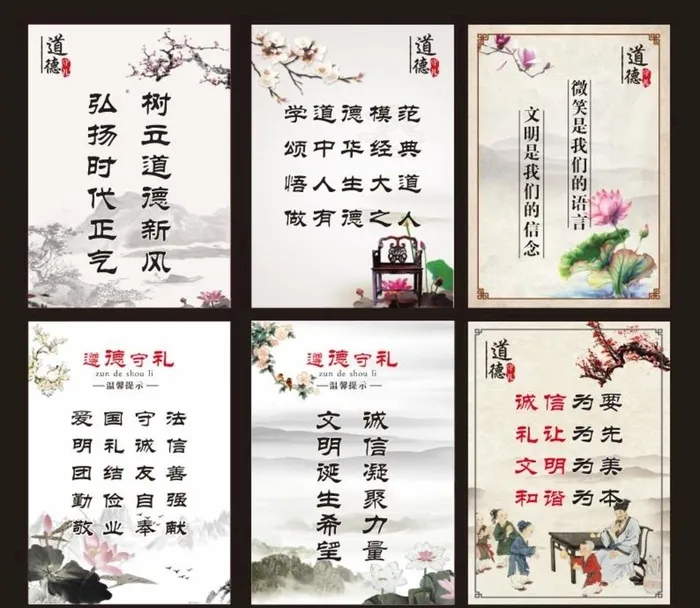 道德
守礼
树立道德新风
弘扬时代正气
道德
守礼
学道德模范
颂中华经典
悟人生大道
做有德之人
道德
守礼
微笑是我们的语言
文明是我们的信念
遵德守礼
zun de shou li
—温馨提示—
爱国守法
明礼诚信
团结友善
勤俭自强
敬业奉献
遵德守礼
zun de shou li
—温馨提示—
诚信凝聚力量
文明诞生希望
道德
守礼
诚信为要
礼让为先
文明为美
和谐为本